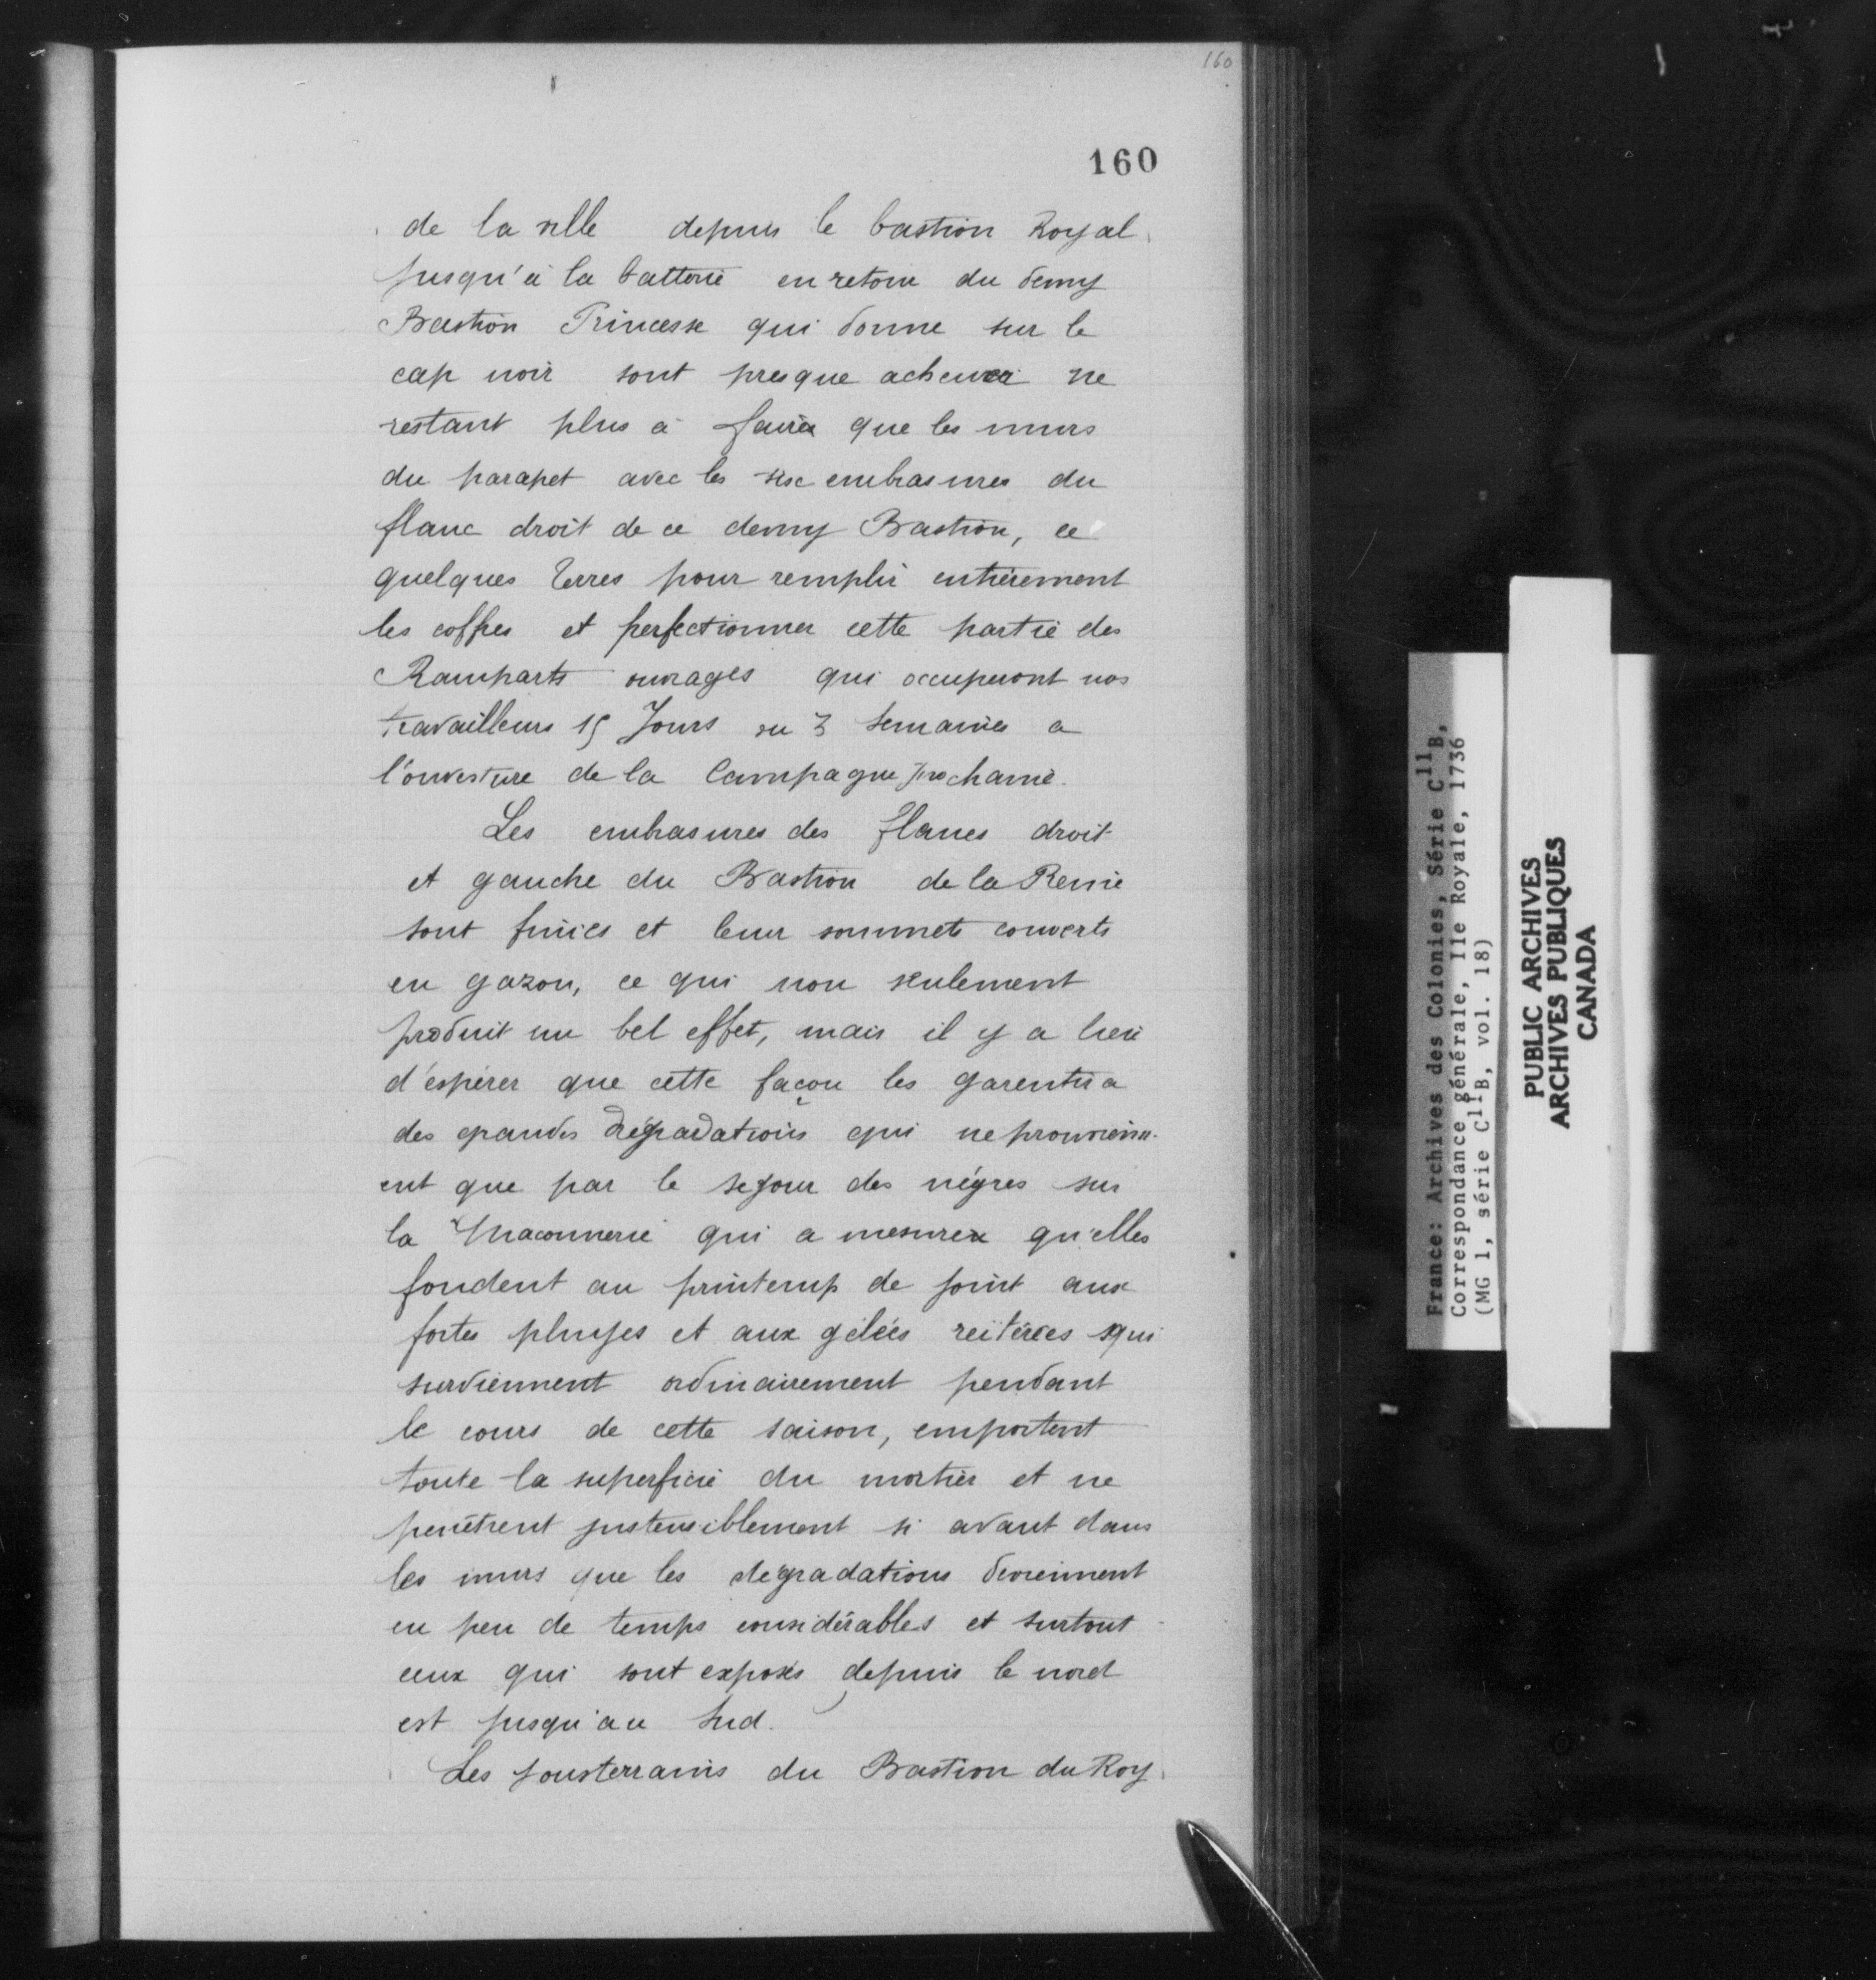 160
160
de la ville depuis le bastion Royal
jusqu'à la batterie en retour du demy
Bastion Princesse qui donne sur le
cap noir sont presque achever ne
restant plus à faire que les murs
du parapet avec les six embrasures du
flanc droit de ce demy Bastion, ce
quelques terres pour remplir entièrement
les coffres et perfectionner cette partie des
Ramparts ouvrages qui occuperont nos
travailleurs 15 Jours ou 3 semaines a
l'ouverture de la Campagne prochaine.
Les embrasures des flancs droit
et gauche du Bastion de la Reine
sont finies et leur sommets couverts
en gazon, ce qui non seulement
produit un bel effet, mais il y a lieu
d'espérer que cette façon les garentira
des grandes dégradations qui ne provienn-
ent que par le sejour des négres sur
la Maconnerie qui a mesure qu'elles
fondent au printemp de joint aux
fortes pluyes et aux gelées reïterées qui
surviennent ordinairement pendant
le cours de cette saison, emportent
toute la superficie du mortier et ne
penétrent si avant dans
les murs que les degradations deviennent
en peu de temps considérables et surtout
ceux qui sont exposés depuis le nord
est jusqu'au Sud.
Les sousterrains du Bastion du Roy
France: Archives des Colonies, Série C11B,
Correspondance générale, Ile Royale, 1736
(MG 1, série C11B, vol. 18)
PUBLIC ARCHIVES
ARCHIVES PUBLIQUES
CANADA